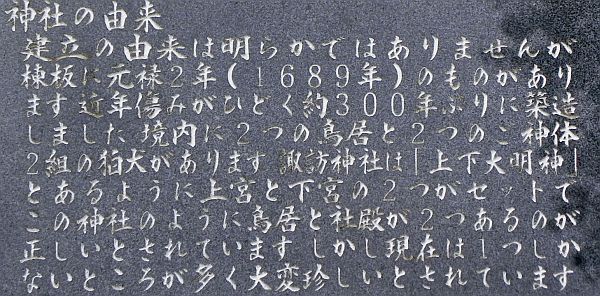 神社の由来
建立の由来は明らかではありませんが
棟板に元禄2年(1689年)のものがあり
ます 近年傷みがひどく約300年ぶりに築造
しました 境内に2つの鳥居と2つのご神体
2組の狛犬があります 諏訪神社は「上下大明神」
とあるように上宮と下宮の2つがセットで
この神社のように鳥居と社殿が2つあるのが
正しいとされています しかし現在は1つしか
ないところが多く大変珍しいとされています